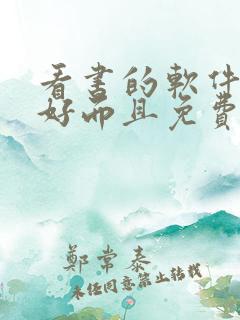 看书的軟件
好而且免費
鄭常泰
未任同意禁止转载